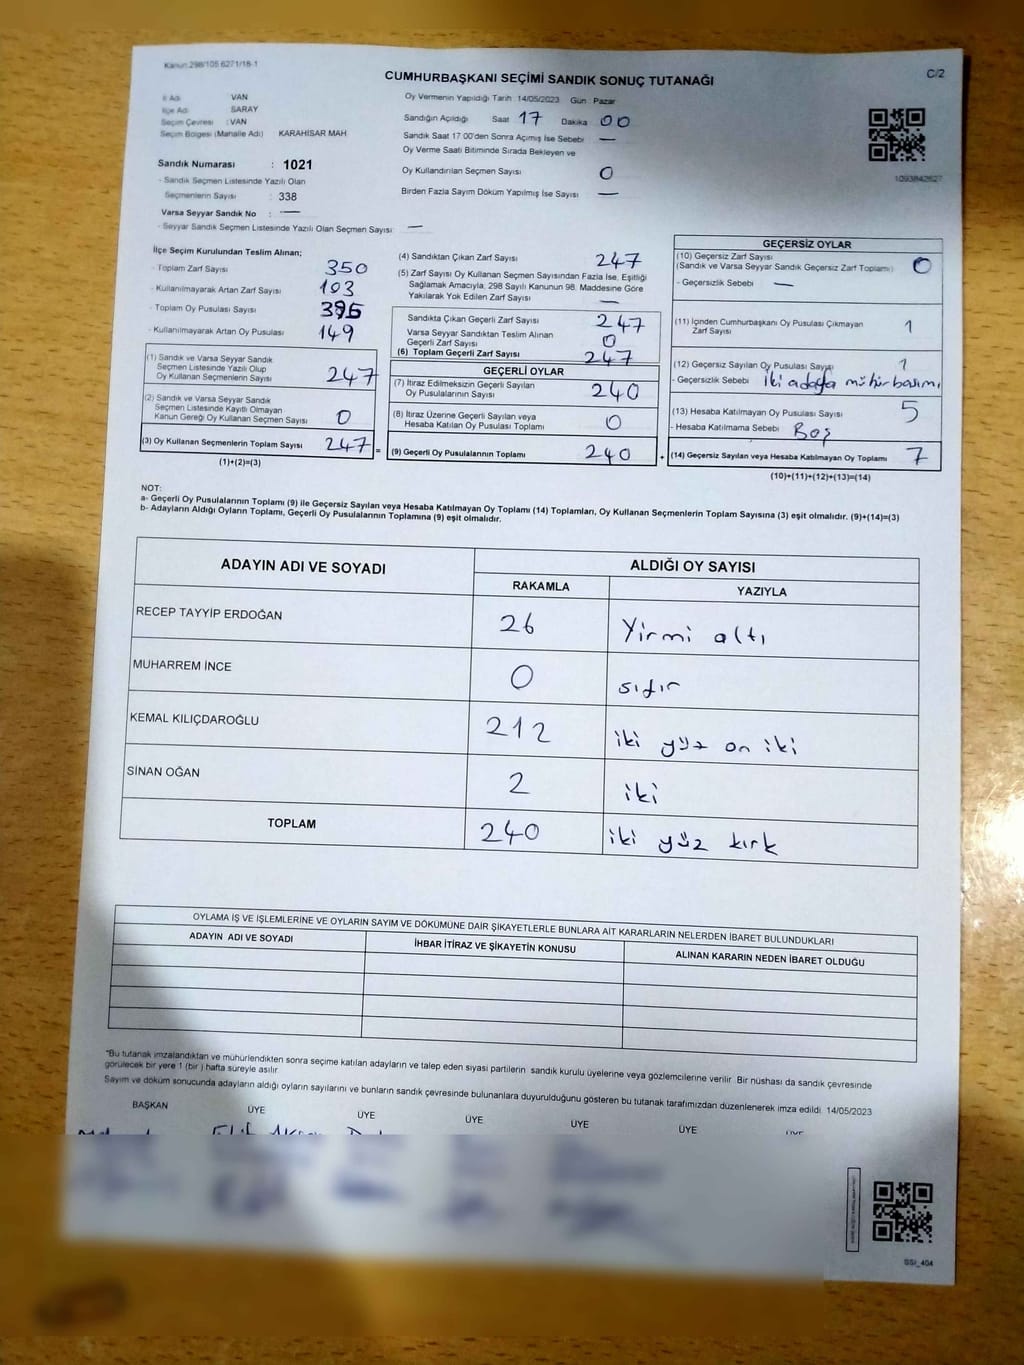 Kanun:298/105 6271/18-1
CUMHURBAŞKANI SEÇİMİ SANDIK SONUÇ TUTANAĞI
C/2
İl Adı : VAN
İlçe Adı : SARAY
Seçim Çevresi : VAN
Seçim Bölgesi (Mahalle Adı) KARAHİSAR MAH
Sandık Numarası : 1021
- Sandık Seçmen Listesinde Yazılı Olan
Seçmenlerin Sayısı : 338
Varsa Seyyar Sandık No : —
- Seyyar Sandık Seçmen Listesinde Yazılı Olan Seçmen Sayısı: —
Oy Vermenin Yapıldığı Tarih : 14/05/2023 Gün : Pazar
Sandığın Açıldığı Saat 17 Dakika 00
Sandık Saat 17:00'den Sonra Açımış İse Sebebi —
Oy Verme Saati Bitiminde Sırada Bekleyen ve
Oy Kullandırılan Seçmen Sayısı 0
Birden Fazla Sayım Döküm Yapılmış İse Sayısı —
1093842627
İlçe Seçim Kurulundan Teslim Alınan;
- Toplam Zarf Sayısı 350
- Kullanılmayarak Artan Zarf Sayısı 103
- Toplam Oy Pusulası Sayısı 396
- Kullanılmayarak Artan Oy Pusulası 149
(1) Sandık ve Varsa Seyyar Sandık
Seçmen Listesinde Yazılı Olup
Oy Kullanan Seçmenlerin Sayısı 247
(2) Sandık ve Varsa Seyyar Sandık
Seçmen Listesinde Kayıtlı Olmayan
Kanun Gereği Oy Kullanan Seçmen Sayısı 0
(3) Oy Kullanan Seçmenlerin Toplam Sayısı 247 =
(1)+(2)=(3)
(4) Sandıktan Çıkan Zarf Sayısı 247
(5) Zarf Sayısı Oy Kullanan Seçmen Sayısından Fazla İse, Eşitliği
Sağlamak Amacıyla, 298 Sayılı Kanunun 98. Maddesine Göre
Yakılarak Yok Edilen Zarf Sayısı —
Sandıkta Çıkan Geçerli Zarf Sayısı 247
Varsa Seyyar Sandıktan Teslim Alınan
Geçerli Zarf Sayısı 0
(6) Toplam Geçerli Zarf Sayısı 247
GEÇERLİ OYLAR
(7) İtiraz Edilmeksizin Geçerli Sayılan
Oy Pusulalarının Sayısı 240
(8) İtiraz Üzerine Geçerli Sayılan veya
Hesaba Katılan Oy Pusulası Toplamı 0
(9) Geçerli Oy Pusulalarının Toplamı 240 +
GEÇERSİZ OYLAR
(10) Geçersiz Zarf Sayısı
(Sandık ve Varsa Seyyar Sandık Geçersiz Zarf Toplamı) 0
- Geçersizlik Sebebi —
(11) İçinden Cumhurbaşkanı Oy Pusulası Çıkmayan
Zarf Sayısı 1
(12) Geçersiz Sayılan Oy Pusulası Sayısı 1
- Geçersizlik Sebebi iki adaya mühür basımı
(13) Hesaba Katılmayan Oy Pusulası Sayısı 5
- Hesaba Katılmama Sebebi Boş
(14) Geçersiz Sayılan veya Hesaba Katılmayan Oy Toplamı 7
(10)+(11)+(12)+(13)=(14)
NOT:
a- Geçerli Oy Pusulalarının Toplamı (9) ile Geçersiz Sayılan veya Hesaba Katılmayan Oy Toplamı (14) Toplamları, Oy Kullanan Seçmenlerin Toplam Sayısına (3) eşit olmalıdır. (9)+(14)=(3)
b- Adayların Aldığı Oyların Toplamı, Geçerli Oy Pusulalarının Toplamına (9) eşit olmalıdır.
ADAYIN ADI VE SOYADI ALDIĞI OY SAYISI
RAKAMLA YAZIYLA
RECEP TAYYİP ERDOĞAN 26 Yirmi altı
MUHARREM İNCE 0 sıfır
KEMAL KILIÇDAROĞLU 212 iki yüz on iki
SİNAN OĞAN 2 iki
TOPLAM 240 iki yüz kırk
OYLAMA İŞ VE İŞLEMLERİNE VE OYLARIN SAYIM VE DÖKÜMÜNE DAİR ŞİKAYETLERLE BUNLARA AİT KARARLARIN NELERDEN İBARET BULUNDUKLARI
ADAYIN ADI VE SOYADI İHBAR İTİRAZ VE ŞİKAYETİN KONUSU ALINAN KARARIN NEDEN İBARET OLDUĞU
*Bu tutanak imzalandıktan ve mühürlendikten sonra seçime katılan adayların ve talep eden siyasi partilerin sandık kurulu üyelerine veya gözlemcilerine verilir. Bir nüshası da sandık çevresinde
görülecek bir yere 1 (bir) hafta süreyle asılır.
Sayım ve döküm sonucunda adayların aldığı oyların sayılarını ve bunların sandık çevresinde bulunanlara duyurulduğunu gösteren bu tutanak tarafımızdan düzenlenerek imza edildi. 14/05/2023
BAŞKAN ÜYE ÜYE ÜYE ÜYE ÜYE ÜYE
SSI_404